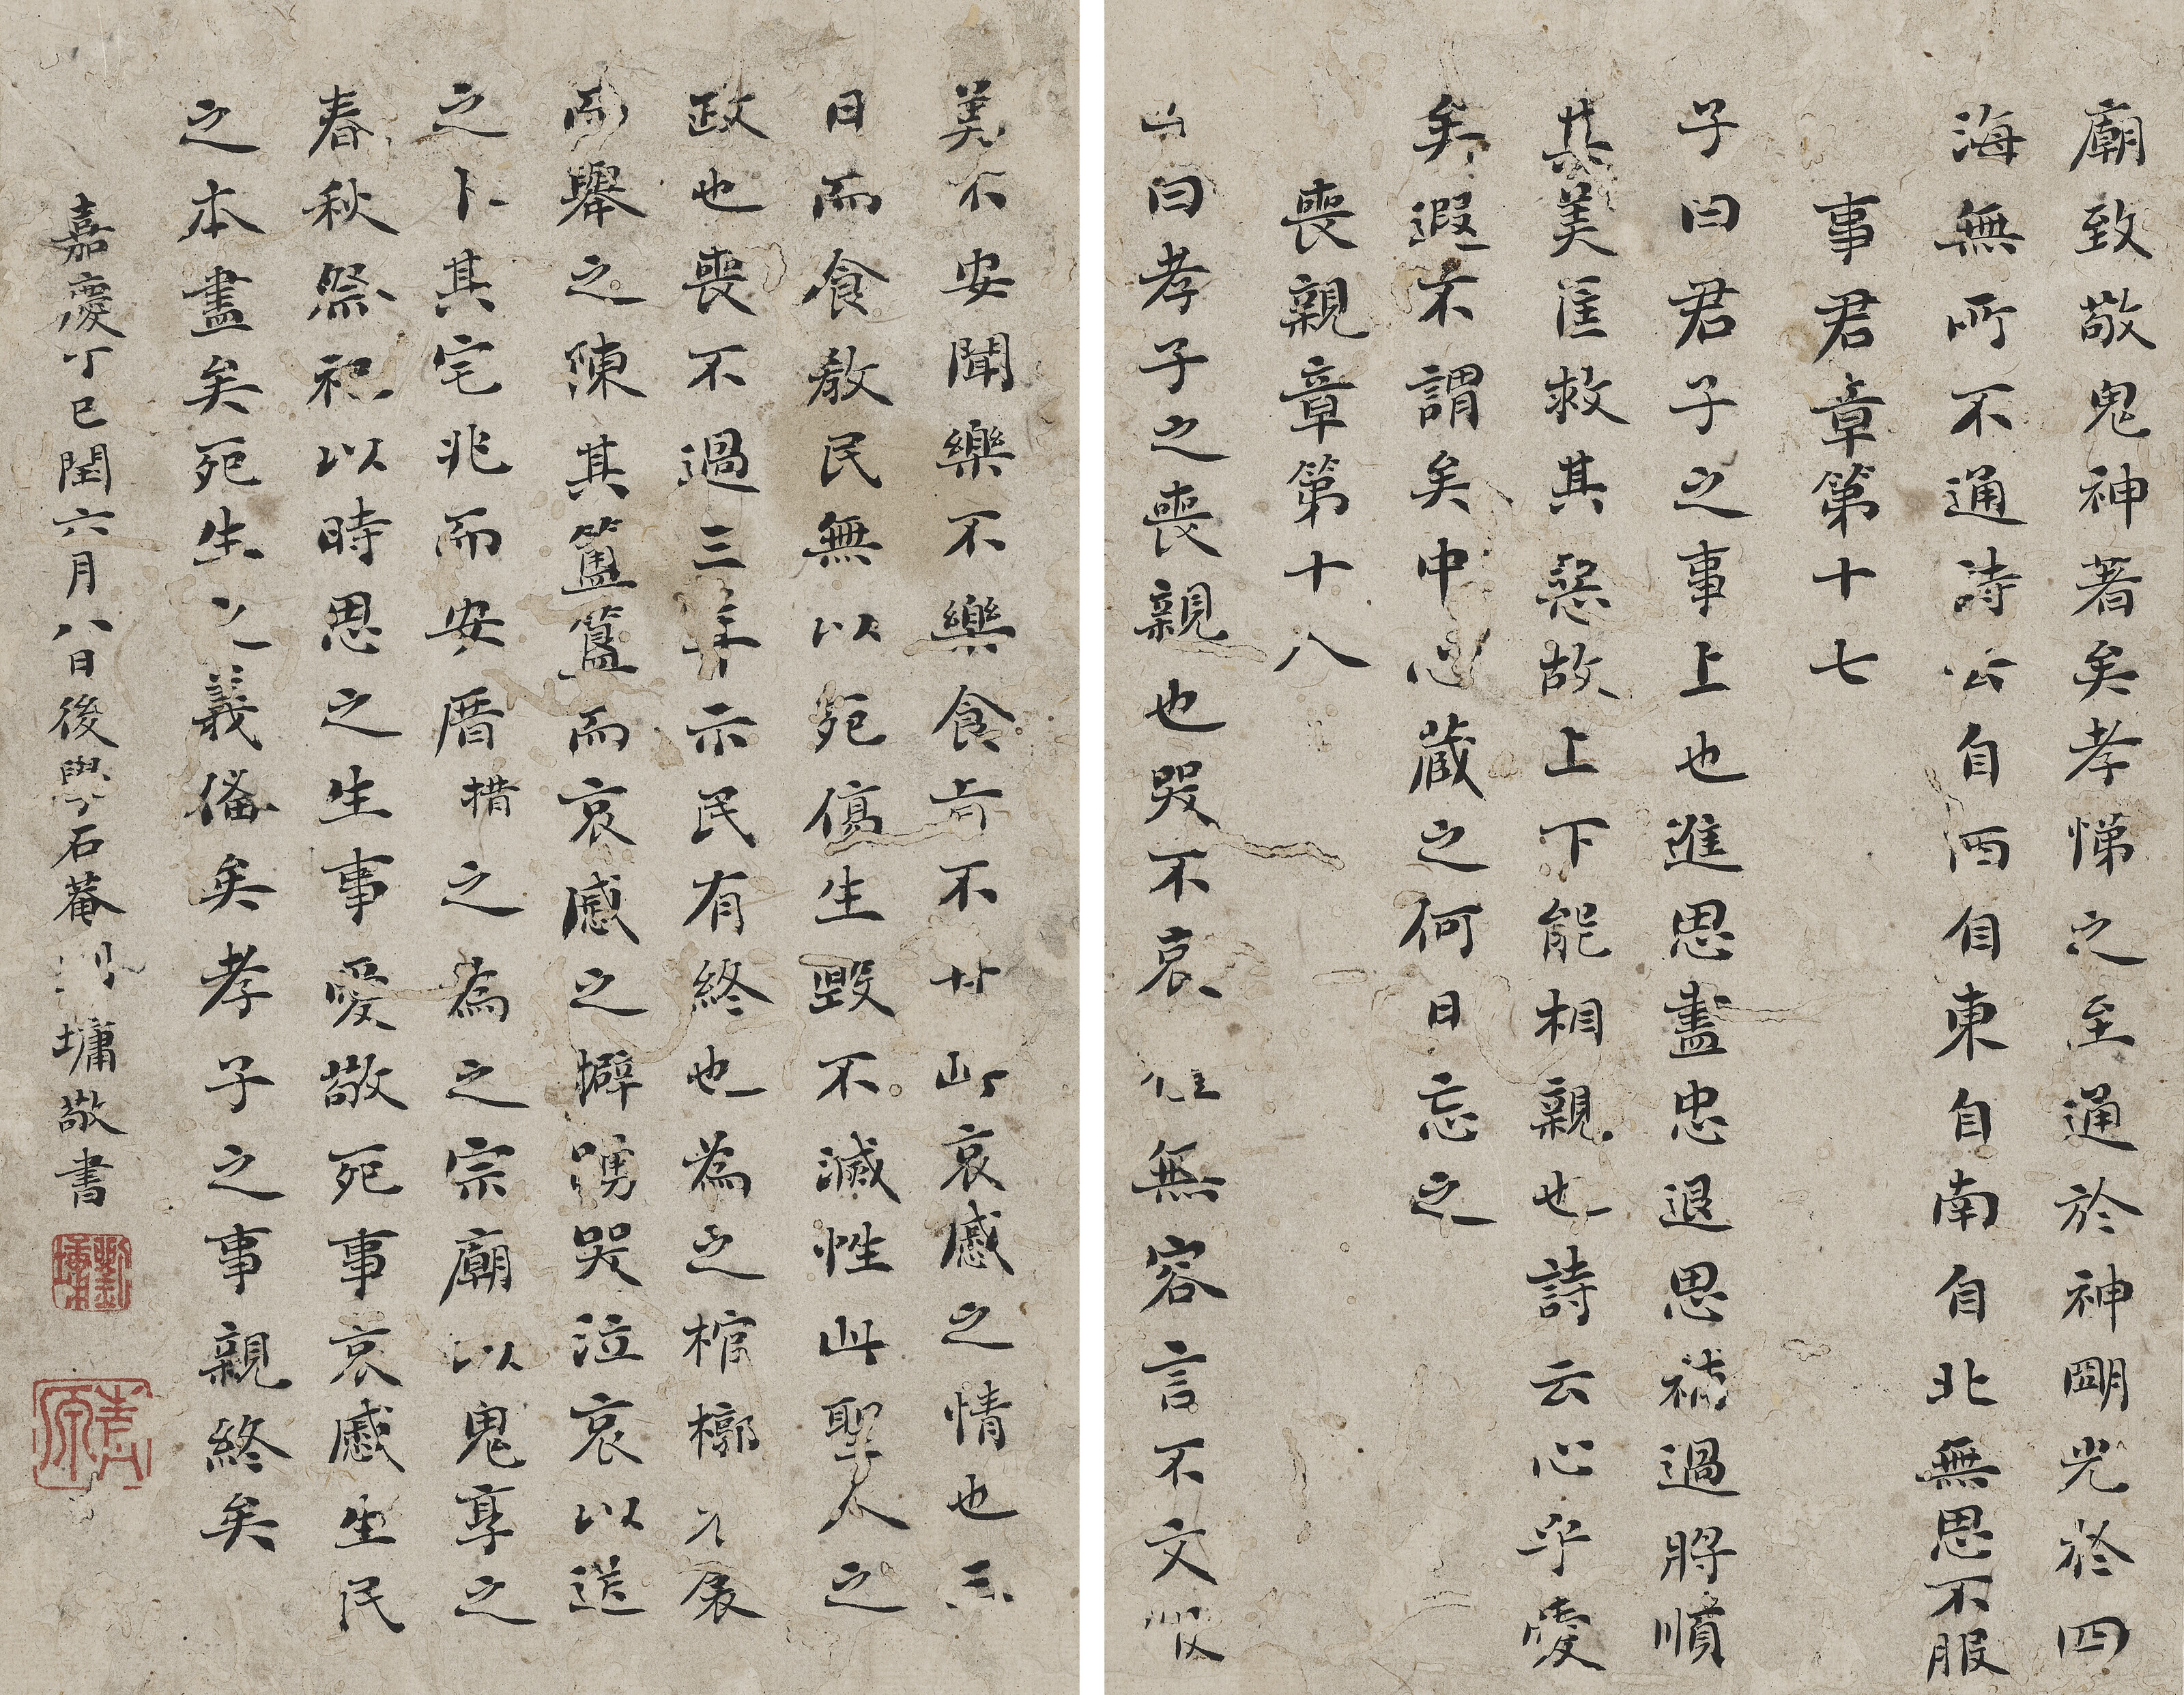 廟致敬鬼神著矣孝悌之至通於神朙光於四
海無所不通詩云自西自東自南自北無思不服
事君章第十七
子曰君子之事上也進思盡忠退思補過將順
其美匡救其惡故上下能相親也詩云心乎愛
矣遐不謂矣中心藏之何日忘之
喪親章第十八
曰孝子之喪親也哭不哀無容言不文服
美不安聞樂不樂食旨不甘此哀慼之情也三
日而食教民無以死傷生毀不滅性此聖人之
政也喪不過三年示民有終也為之棺槨衣衾
而舉之陳其簠簋而哀慼之擗踴哭泣哀以送
之卜其宅兆而安厝措之為之宗廟以鬼享之
春秋祭祀以時思之生事愛敬死事哀慼生民
之本盡矣死生之義備矣孝子之事親終矣
嘉慶丁巳閏六月八日後學石菴劉墉敬書
劉墉